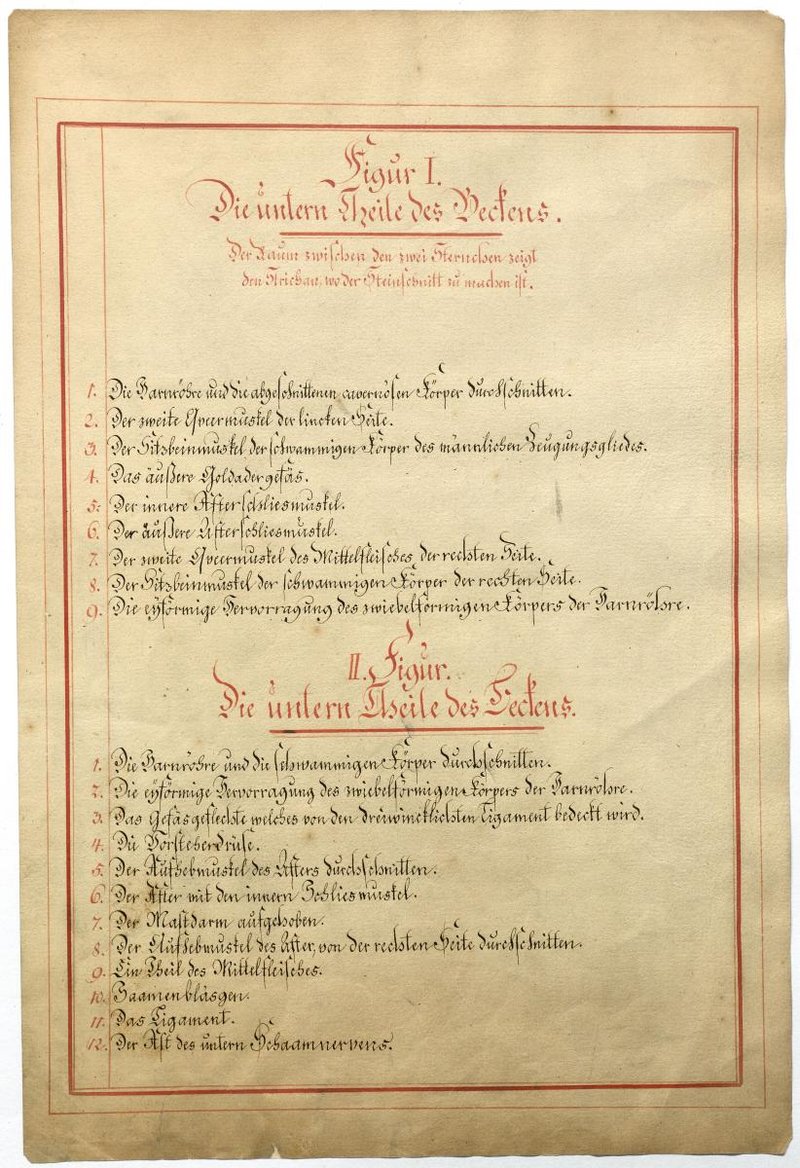 Figur I.
Die untern Theile des Beckens.
Der Raum zwischen den zwei Sternchen zeigt
den Strich an, wo der Steinschnitt zu machen ist.
1. Die Harnröhre und die abgeschnittenen cavernösen Körper durchschnitten.
2. Der zweite Qveermuskel der lincken Seite.
3. Der Sitzbeinmuskel der schwammigen Körper des männlichen Zeugungsgliedes.
4. Das äußere Goldadergefäs.
5. Der innere Afterschliesmuskel.
6. Der äußere Afterschliesmuskel.
7. Der zweite Qveermuskel des Mittelfleisches, der rechten Seite.
8. Der Sitzbeinmuskel der schwammigen Körper der rechten Seite.
9. Die eyförmige Hervorragung des zwiebelförmigen Körpers der Harnröhre.
II. Figur.
Die untern Theile des Beckens.
1. Die Harnröhre und die schwammigen Körper durchschnitten.
2. Die eyförmige Hervorragung des zwiebelförmigen Körpers der Harnröhre.
3. Das Gefäsgeflechte welches von den dreiwincklichten Ligament bedeckt wird.
4. Die Vorsteherdrüse.
5. Der Aufhebmuskel des Afters durchschnitten.
6. Der After mit den innern Schliesmuskel.
7. Der Mastdarm aufgehoben.
8. Der Aufhebmuskel des After, von der rechten Seite durchschnitten.
9. Ein Theil des Mittelfleisches.
10. Saamenbläsgen.
11. Das Ligament.
12. Der Ast des untern Schaamnervens.